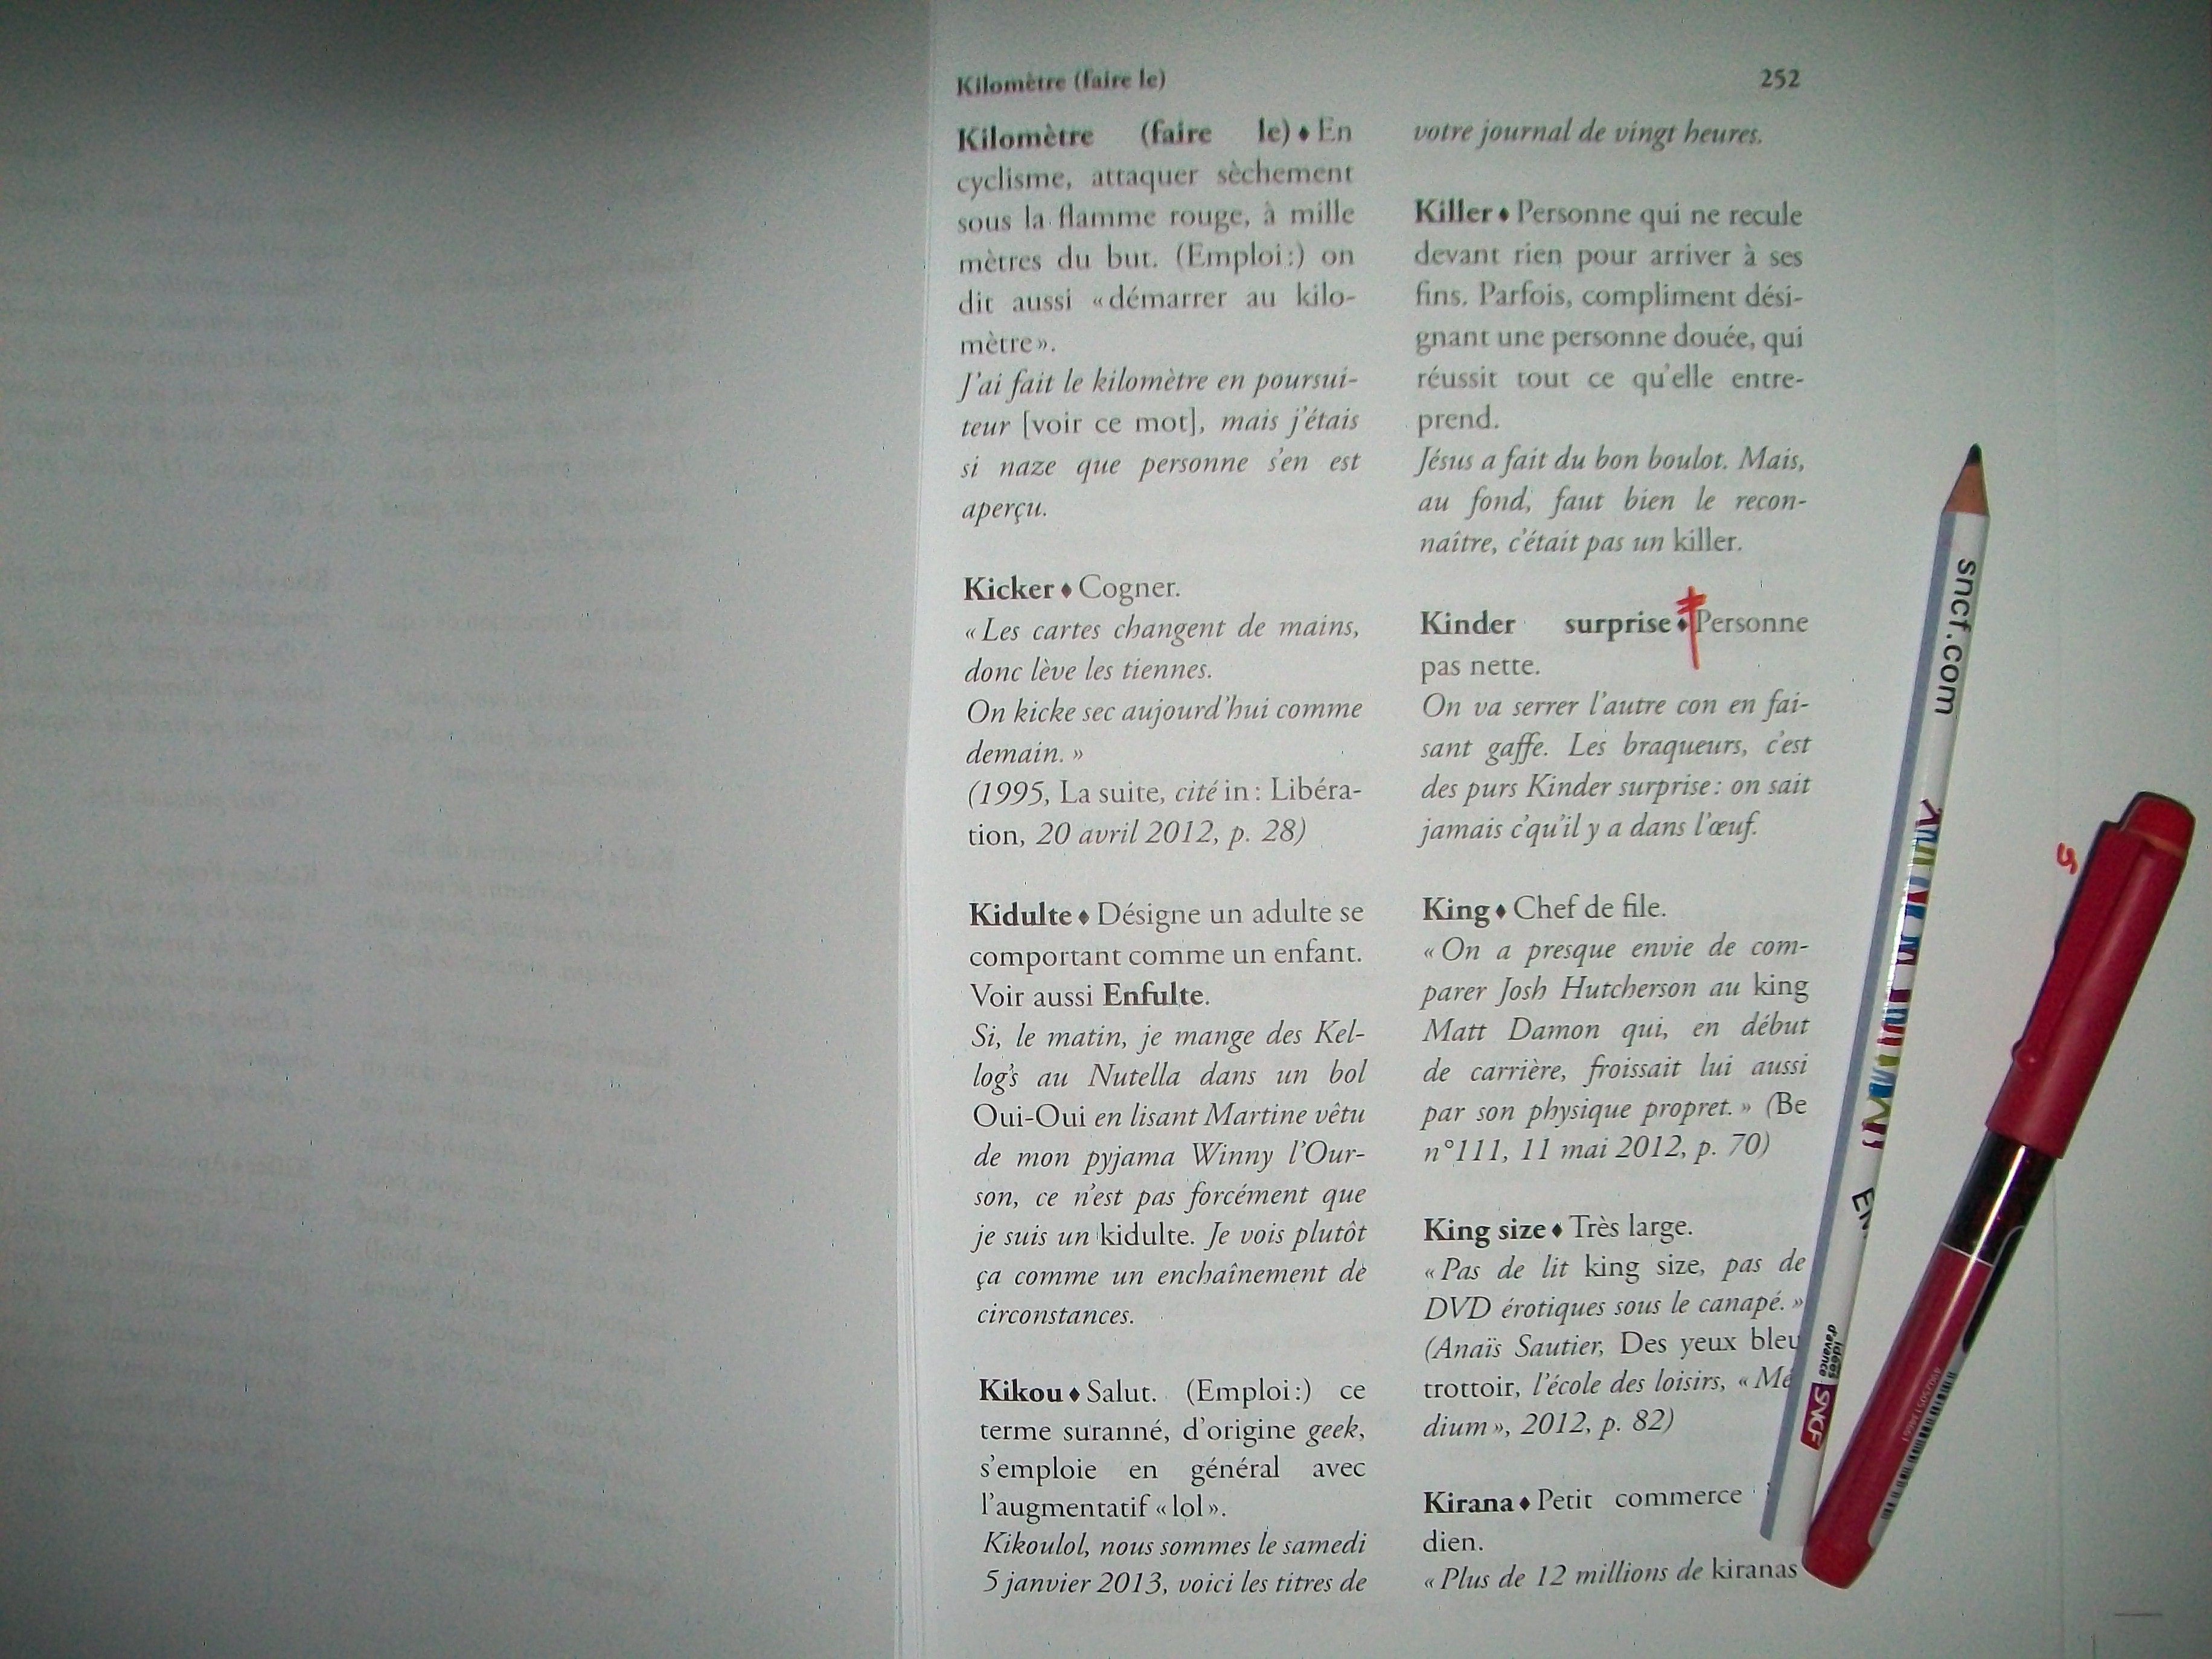 Kilomètre (faire le)
252
Kilomètre (faire le) ♦ En
cyclisme, attaquer sèchement
sous la flamme rouge, à mille
mètres du but. (Emploi :) on
dit aussi « démarrer au kilo-
mètre ».
J'ai fait le kilomètre en poursui-
teur [voir ce mot], mais j'étais
si naze que personne s'en est
aperçu.
Kicker ♦ Cogner.
« Les cartes changent de mains,
donc lève les tiennes.
On kicke sec aujourd'hui comme
demain. »
(1995, La suite, cité in : Libéra-
tion, 20 avril 2012, p. 28)
Kidulte ♦ Désigne un adulte se
comportant comme un enfant.
Voir aussi Enfulte.
Si, le matin, je mange des Kel-
log's au Nutella dans un bol
Oui-Oui en lisant Martine vêtu
de mon pyjama Winny l'Our-
son, ce n'est pas forcément que
je suis un kidulte. Je vois plutôt
ça comme un enchaînement de
circonstances.
Kikou ♦ Salut. (Emploi :) ce
terme suranné, d'origine geek,
s'emploie en général avec
l'augmentatif « lol ».
Kikoulol, nous sommes le samedi
5 janvier 2013, voici les titres de
votre journal de vingt heures.
Killer ♦ Personne qui ne recule
devant rien pour arriver à ses
fins. Parfois, compliment dési-
gnant une personne douée, qui
réussit tout ce qu'elle entre-
prend.
Jésus a fait du bon boulot. Mais,
au fond, faut bien le recon-
naître, c'était pas un killer.
Kinder surprise ♦ Personne
pas nette.
On va serrer l'autre con en fai-
sant gaffe. Les braqueurs, c'est
des purs Kinder surprise : on sait
jamais c'qu'il y a dans l'œuf.
King ♦ Chef de file.
« On a presque envie de com-
parer Josh Hutcherson au king
Matt Damon qui, en début
de carrière, froissait lui aussi
par son physique propret. » (Be
n°111, 11 mai 2012, p. 70)
King size ♦ Très large.
« Pas de lit king size, pas de
DVD érotiques sous le canapé. »
(Anaïs Sautier, Des yeux bleu
trottoir, l'école des loisirs, « Mé
dium », 2012, p. 82)
Kirana ♦ Petit commerce
dien.
« Plus de 12 millions de kiranas
sncf.com
idées
d'avance
SNCF